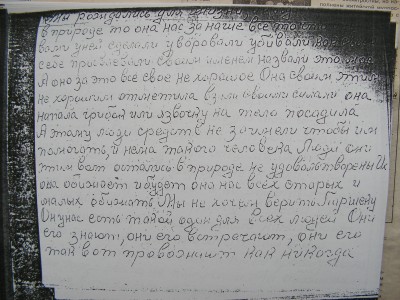 Мы рождались для жизни
в природе то она нас за наше все
вами у ней сделали уворовали убивали
себе присвоили своим именем назвали это
А оно за это все свое не хорошое Она своим этим
не хорошим отметила взяла своими силами она
напала грибок или язвочку на тело посадила
А этому люди средств не заимели чтобы им
помогать, и нема такого человека Люди они
этим вот остались в природе не удовольтворены Их
она обижает и будет она нас всех старых и
малых обижать Мы не хочем верить Паршеку
Он у нас есть такой один для всех людей Они
его знают, они его встречают, они его
так вот провожают как никогда